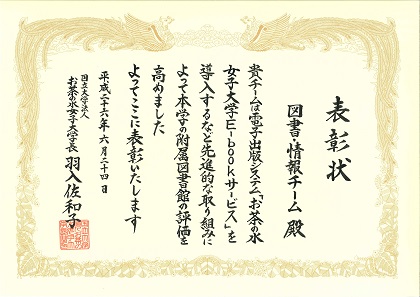 表彰状
図書・情報チーム 殿
貴チームは電子出版システム「お茶の水
女子大学E-bookサービス」を
導入するなど先進的な取り組みに
よって本学の附属図書館の評価を
高めました
よってここに表彰いたします
平成二十六年六月二十四日
国立大学法人
お茶の水女子大学長 羽入佐和子